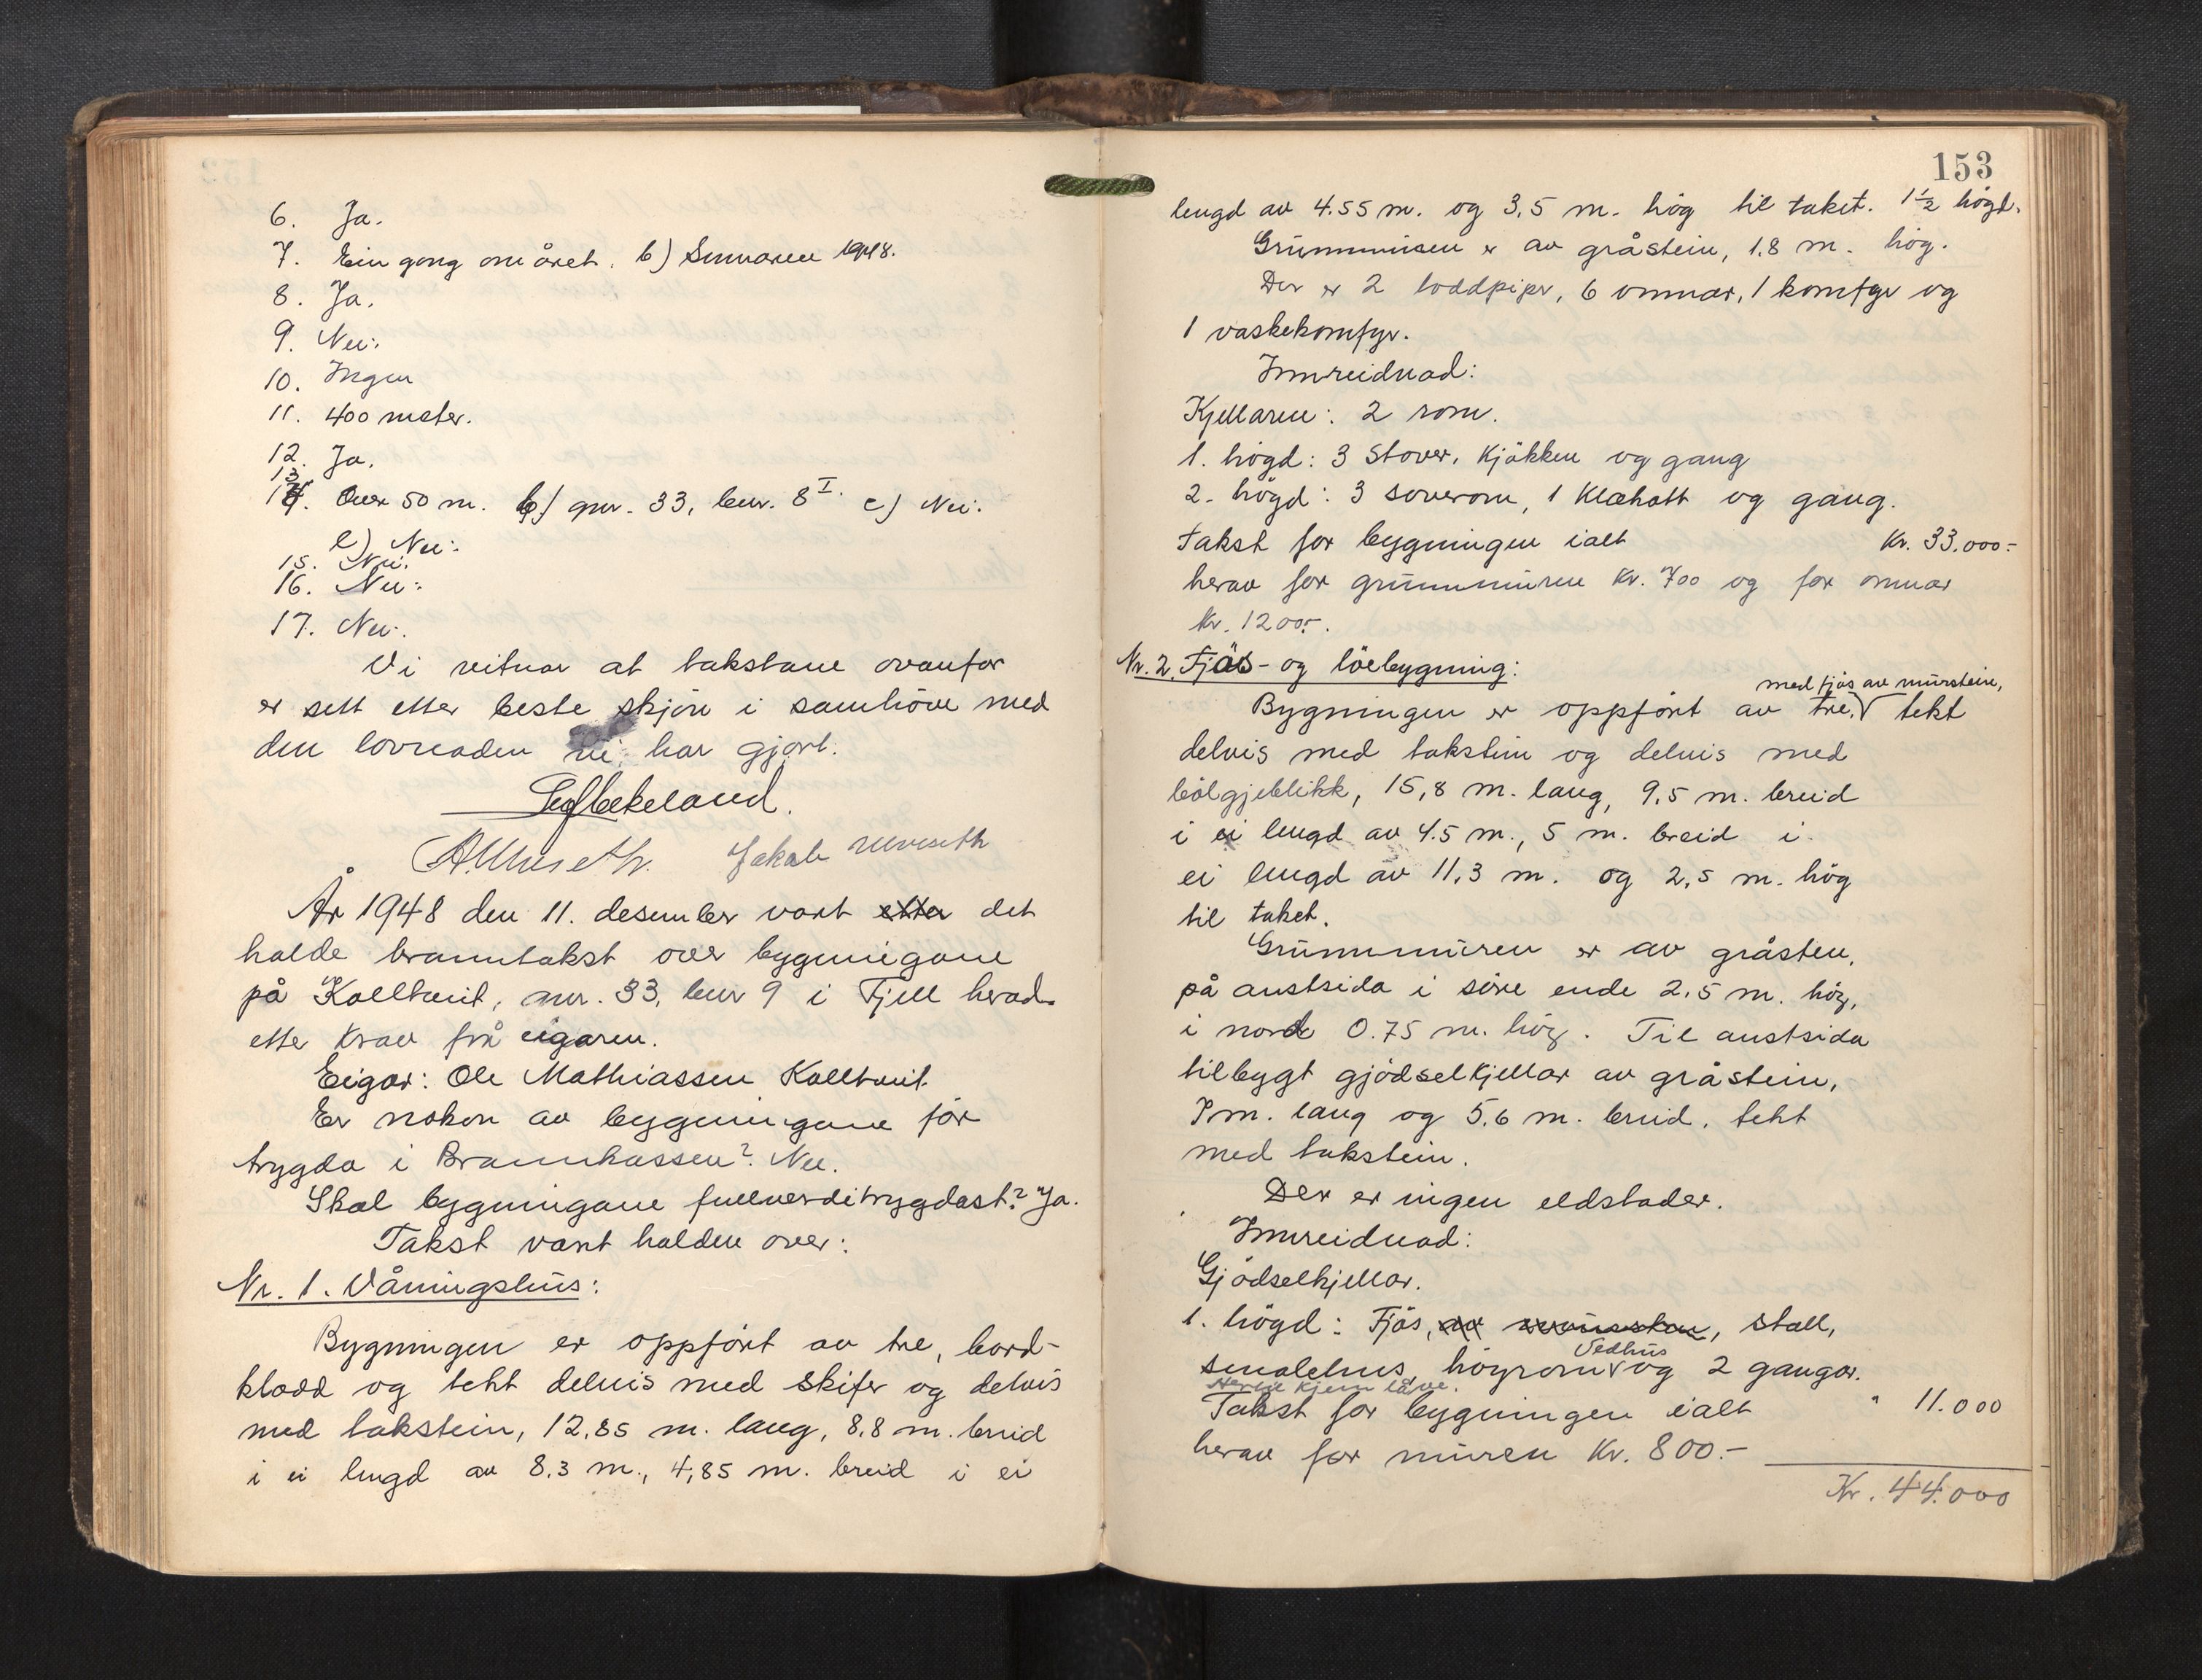 6. Ja.
7. Ein gong om året. b) Sumaren 1948.
8. Ja.
9. Nei.
10. Ingen
11. 400 meter.
12. Ja.
13.
14. Over 50 m. b) gnr. 33, bnr. 8 I. c) Nei.
e) Nei.
15. Nei.
16. Nei.
17. Nei.
Vi vitnar at takstane ovanfor
er sett etter beste skjön i samhöve med
den lovnaden vi har gjort.
Jakob Ulveseth
År 1948 den 11. desember vart etter det
halde branntakst over bygningane
på Kolltveit, gnr. 33, bnr 9 i Fjell herad
etter krav frå eigaren.
Eigar: Ole Mathiassen Kolltveit
Er nokon av bygningane för
trygda i Brannkassen? Nei.
Skal bygningane fullverditrygdast? Ja.
Takst vart halden over:
Nr. 1. Våningshus:
Bygningen er oppfört av tre, bord-
kledd og tekt delvis med skifer og delvis
med takstein, 12,85 m. lang, 8.8 m. breid
i ei lengd av 8.3 m., 4,85 m. breid i ei
153
lengd av 4.55 m. og 3,5 m. hög til taket. 1½ högd.
Grunnmuren er av gråstein, 1.8 m. hög.
Der er 2 loddpiper, 6 omnar, 1 komfyr og
1 vaskekomfyr.
Innreidnad:
Kjellaren: 2 rom.
1. högd: 3 stover, kjökken og gang
2. högd: 3 soverom, 1 klæhott og gang.
Takst for bygningen ialt Kr. 33.000:-
herav for grunnmuren Kr. 700 og for omnar
Kr. 1200:-.
Nr. 2. Fjös- og löebygning:
med fjös av murstein,
Bygningen er oppfört av tre, tekt
delvis med takstein og delvis med
bölgjeblikk, 15,8 m. lang, 9.5 m. breid
i ei lengd av 4.5 m., 5 m. breid i
ei lengd av 11,3 m. og 2,5 m. hög
til taket.
Grunnmuren er av gråsten,
på austsida i söre ende 2,5 m. hög,
i nord 0.75 m. hög. Til austsida
tilbygt gjödselkjellar av gråstein,
7 m. lang og 5,6 m. breid, tekt
med takstein.
Der er ingen eldstader.
Innreidnad:
Gjödselkjellar.
1. högd: Fjös, stall,
Vedhus
smalehus, höyrom og 2 gangar.
Hertil kjem låve.
Takst for bygningen ialt " 11.000
herav for muren Kr. 800.-
Kr. 44.000